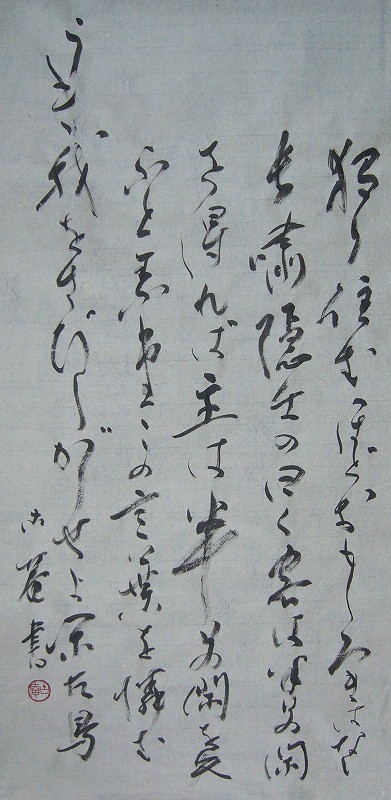 獨り住むほどおもしろきはなし
長嘯隠士の曰く客は半日の閑
を得れば主は半日の閑を失
ふと素堂この言葉を憐む
うき我をさびしがらせよ閑古鳥
庵書